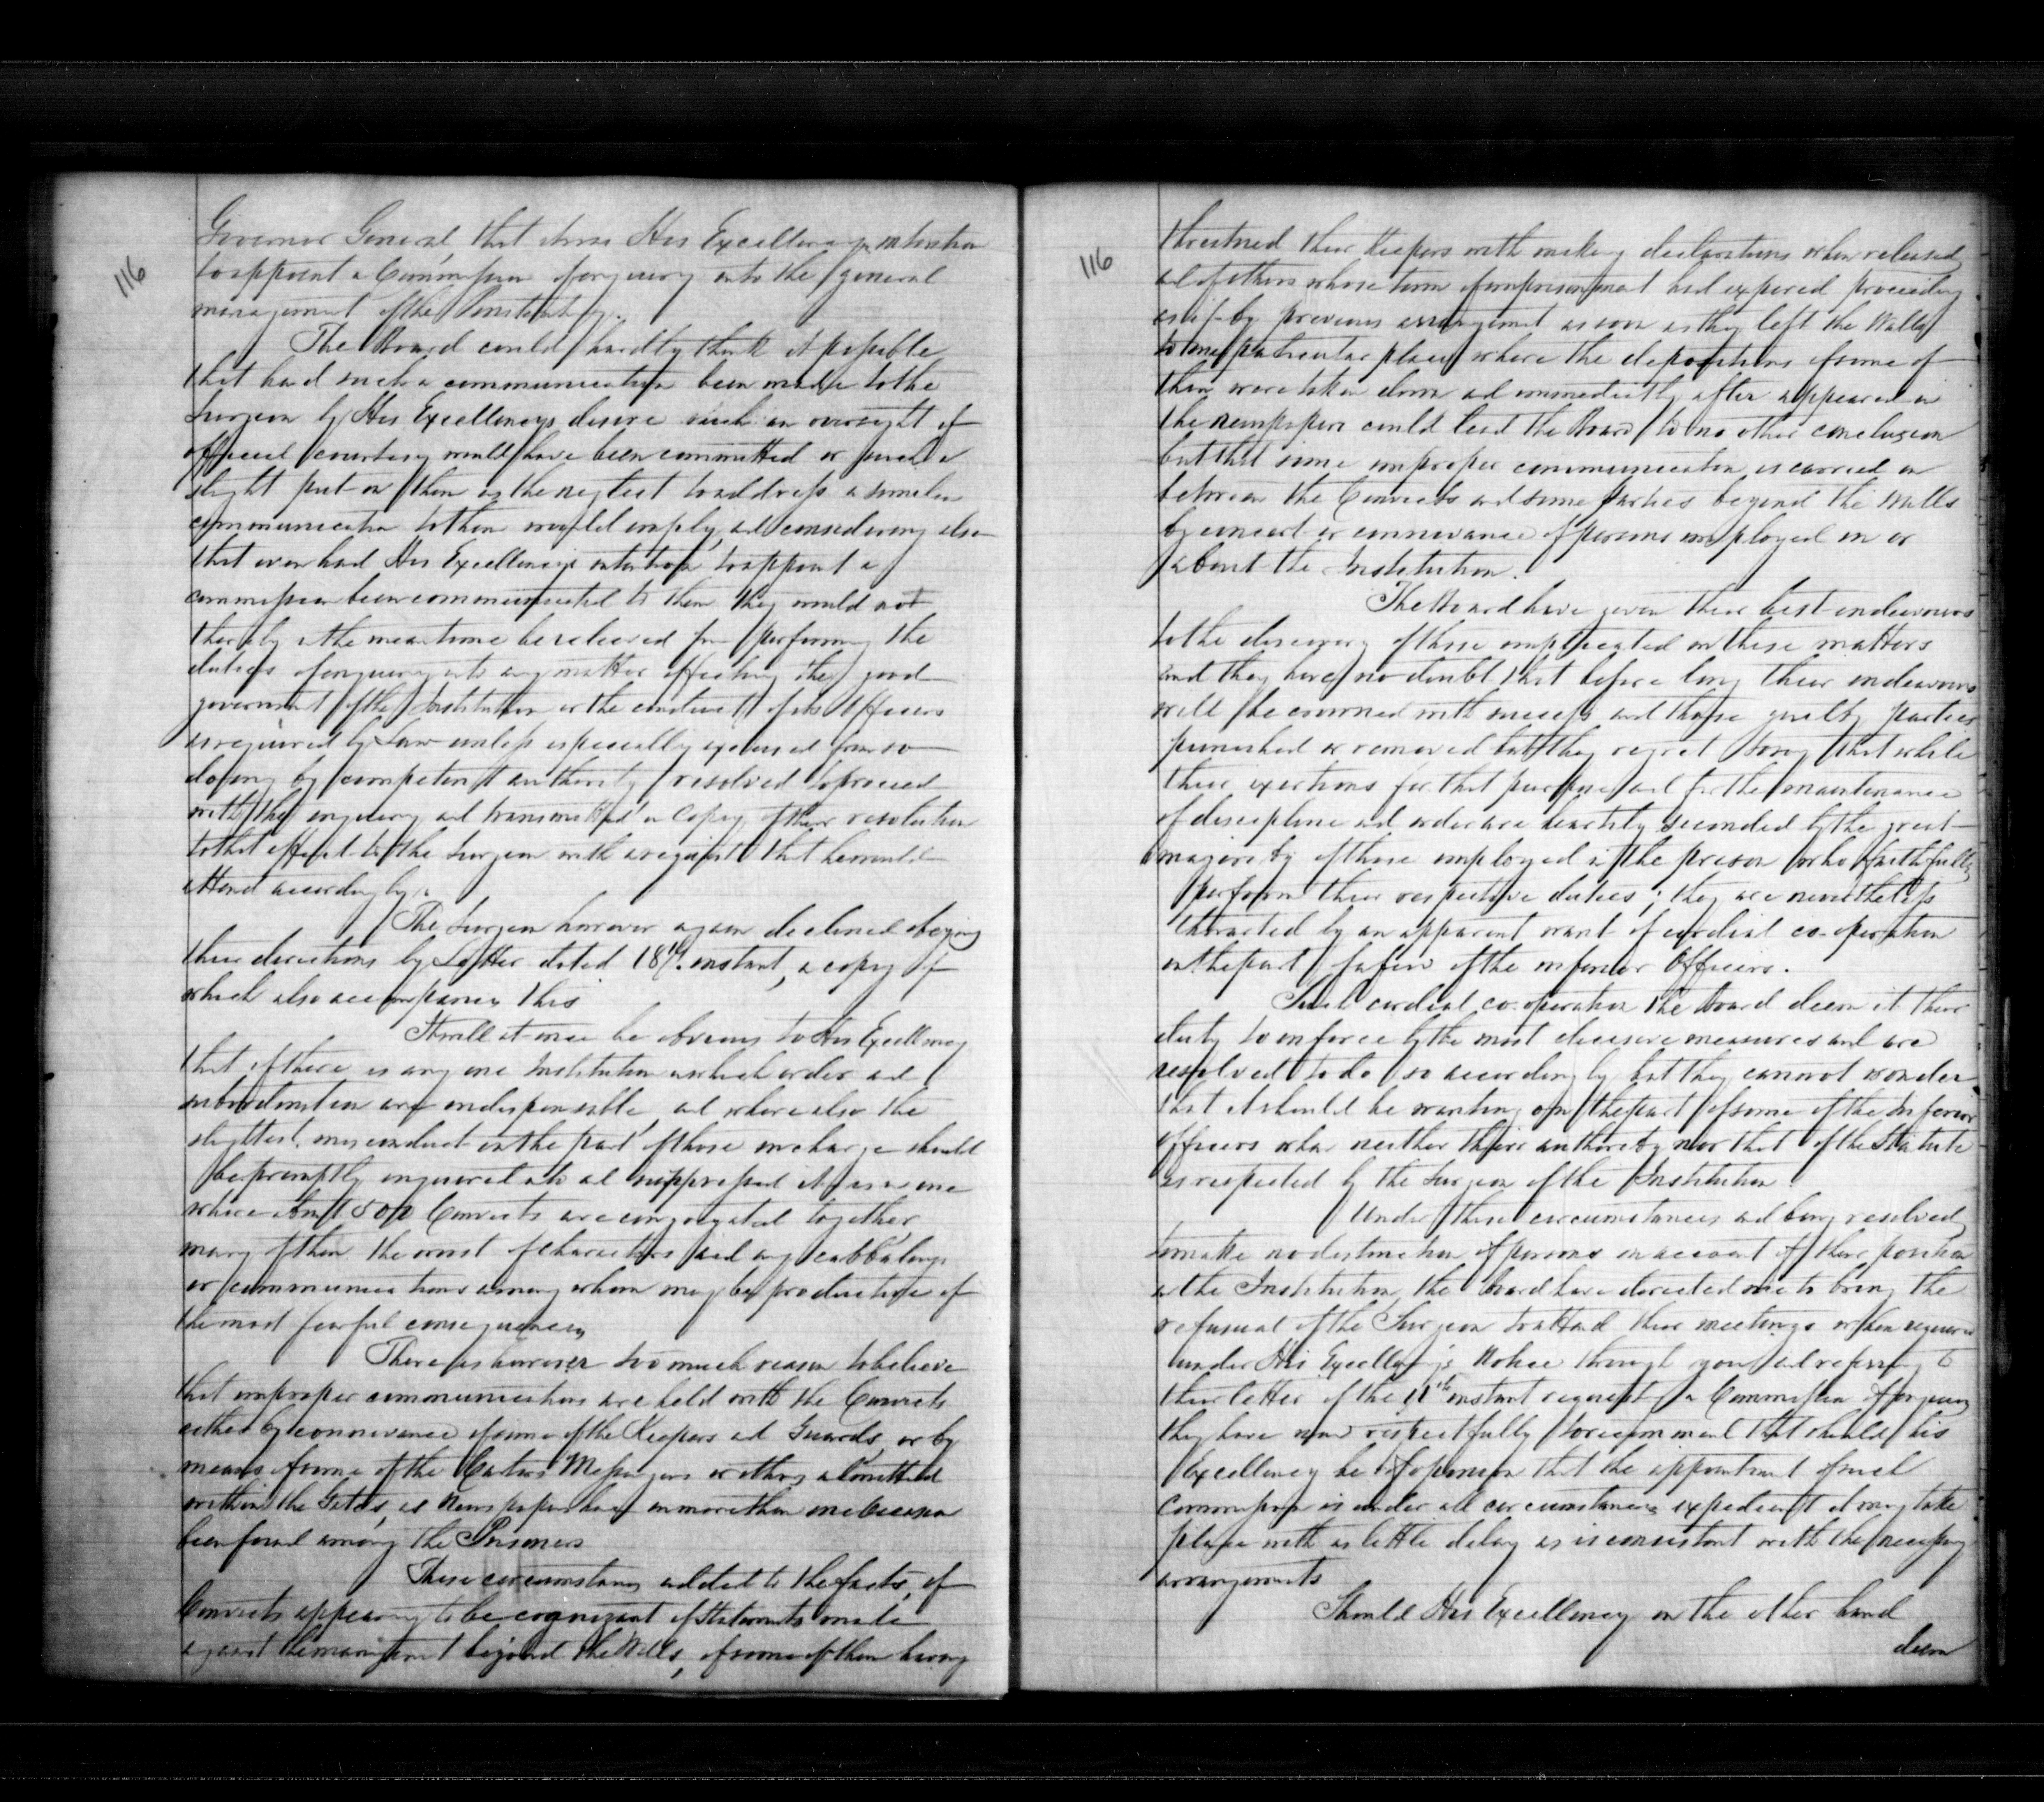 116
Governor General, that it was His Excellency's intention
to appoint a Commission of enquiry into the general
management of the Institution.
The Board could hardly think it possible
that had such a communication been made to the
Surgeon by His Excellencys desire such an oversight of
official courtesy would have been committed or such a
slight put on them as the neglect to address a similar
communication to them would imply, and considering also
that even had His Excellencys intention to appoint a
commission been communicated to them they would not
thereby in the meantime be relieved from performing the
duties of enquiry into any matter affecting the good
government of the Institution or the conduct of its Officers
as required by Law unless especially excused from so
doing by competent authority resolved to proceed
with the enquiry and transmitted a copy of their resolution
to that effect to the Surgeon with a request that he would
attend accordingly.
The Surgeon however again declined obeying
their directions by Letter dated 18th. instant, a copy of
which also accompanies this
It will at once be obvious to His Excellency
that if there is any one Institution in which order and
subordination are indispensable, and where also the
slightest misconduct on the part of those in charge should
be promptly enquired into and suppressed it is in one
where about 500 Convicts are congregated together,
many of them the worst of characters and any cabbalings
or communications among whom may be productive of
the most fearful consequences
There is however too much reason to believe
that improper communications are held with the Convicts
either by connivance of some of the Keepers and Guards, or by
means of some of the Carters Messengers or others admitted
within the Gates, as Newspapers have on more than one occasion
been found among the Prisoners
These circumstances added to the facts, of
Convicts appearing to be cognizant of Statements made
against the management beyond the Walls, of some of them having
116
threatened their Keepers with making declarations when released
and of others whose term of imprisonment had expired proceeding
as if by previous arrangement as soon as they left the Walls
to one particular place where the depositions of some of
them were taken down and immediately after appeared in
the newspapers could lead the Board to no other conclusion
but that some improper communication is carried on
between the Convicts and some parties beyond the walls
by concert or connivance of persons employed in or
about the Institution.
The Board have given their best endeavours
to the discovery of those implicated in these matters
and they have no doubt that before long their endeavours
will be crowned with success and those guilty parties
punished or removed but they regret to say that while
their exertions for that purpose and for the maintenance
of discipline and order are heartily seconded by the great
majority of those employed in the prison who faithfully
perform their respective duties; they are nevertheless
thwarted by an apparent want of cordial co-operation
on the part of a few of the inferior Officers.
Such cordial co-operation the Board deem it their
duty to enforce by the most decisive measures and are
resolved to do so accordingly but they cannot wonder
that it should be wanting on the part of some of the Inferior
Officers when neither their authority nor that of the Statute
is respected by the Surgeon of the Institution.
Under these circumstances and being resolved
to make no distinction of persons on account of their position
in the Institution, the Board have directed me to bring the
refusal of the Surgeon to attend their meetings when required
under His Excellency's Notice through you and referring to
their letter of the 11th instant request for a Commission of enquiry
they have now respectfully to recommend that should his
Excellency be of opinion that the appointment of such
Commission is under all circumstances expedient it may take
place with as little delay as is consistent with the necessary
arrangements
Should His Excellency on the other hand
deem